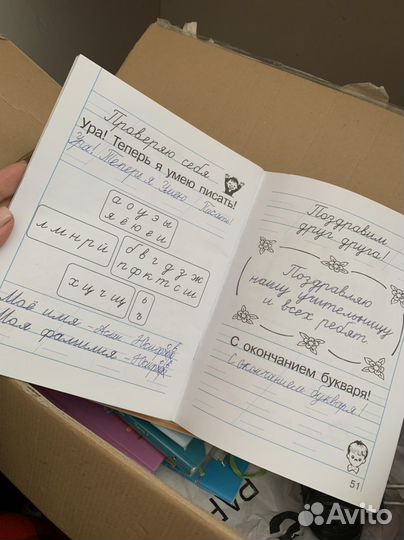 Проверяю себя
Ура! Теперь я умею писать!
Ура! Теперь я умею писать!
а о у э ы
я ё ю е и
л м н р й
б в г д з ж
п ф к т с ш
х ц ч щ
ь
ъ
Моё имя -
Моя фамилия -
Поздравим
друг друга!
Поздравляю
нашу учительницу
и всех ребят
С окончанием букваря!
С окончанием букваря!
51
Avito